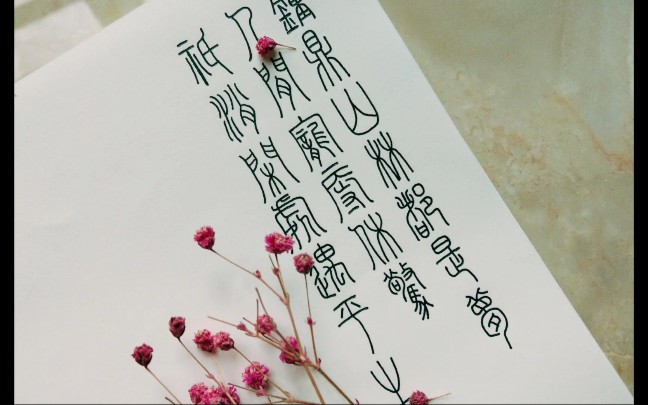 鐘鼎山林都是夢
人閒寵辱休驚
祇消閑處過平生